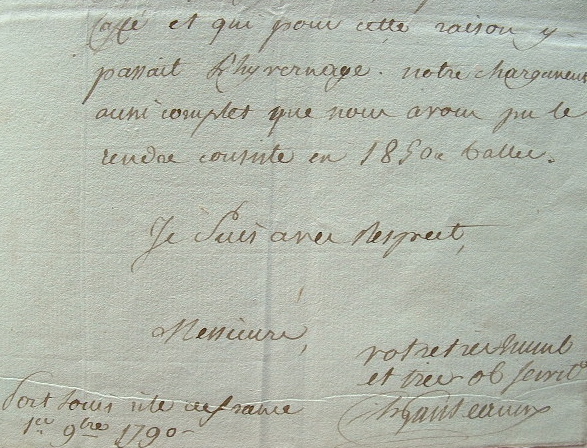 et qui pour cette raison y
passait l'hyvernage. notre chargement
aussi complet que nous avons pu le
rendre consiste en 1850 balles.
Je suis avec Respect,
Messieurs,
votre tres humb
et tres ob servite
Port Louis isle de france
1er 9bre 1790